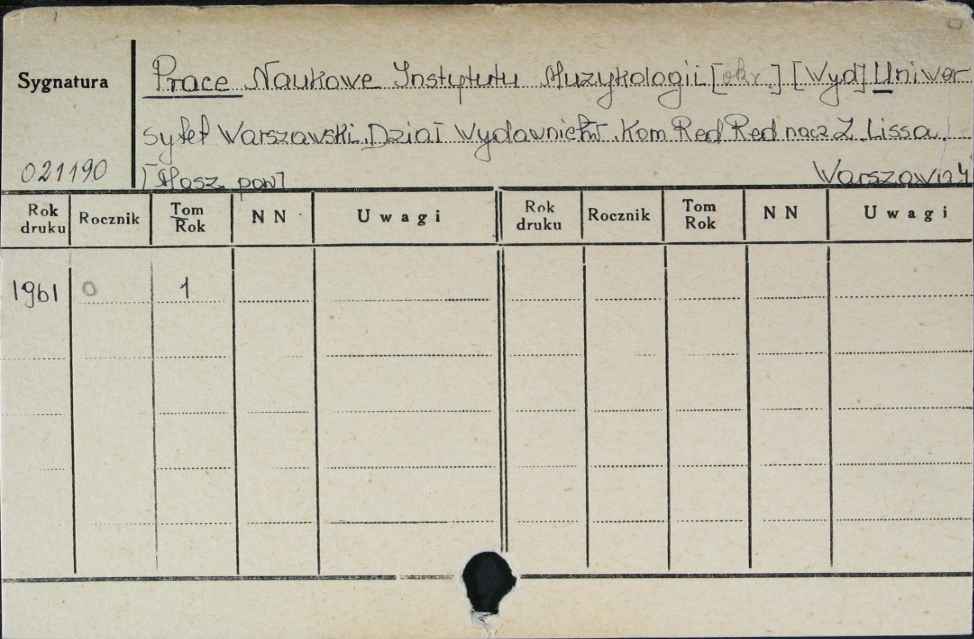 Sygnatura
Prace Naukowe Instytutu Muzykologii [okr.] [Wyd] Uniwer-
sytet Warszawski. Dział Wydawnictw. Kom Red Red nacz Z. Lissa.
021190 [Masz. pow] Warszawa
Rok druku Rocznik Tom Rok N N Uwagi Rok druku Rocznik Tom Rok N N Uwagi
1961 0 1